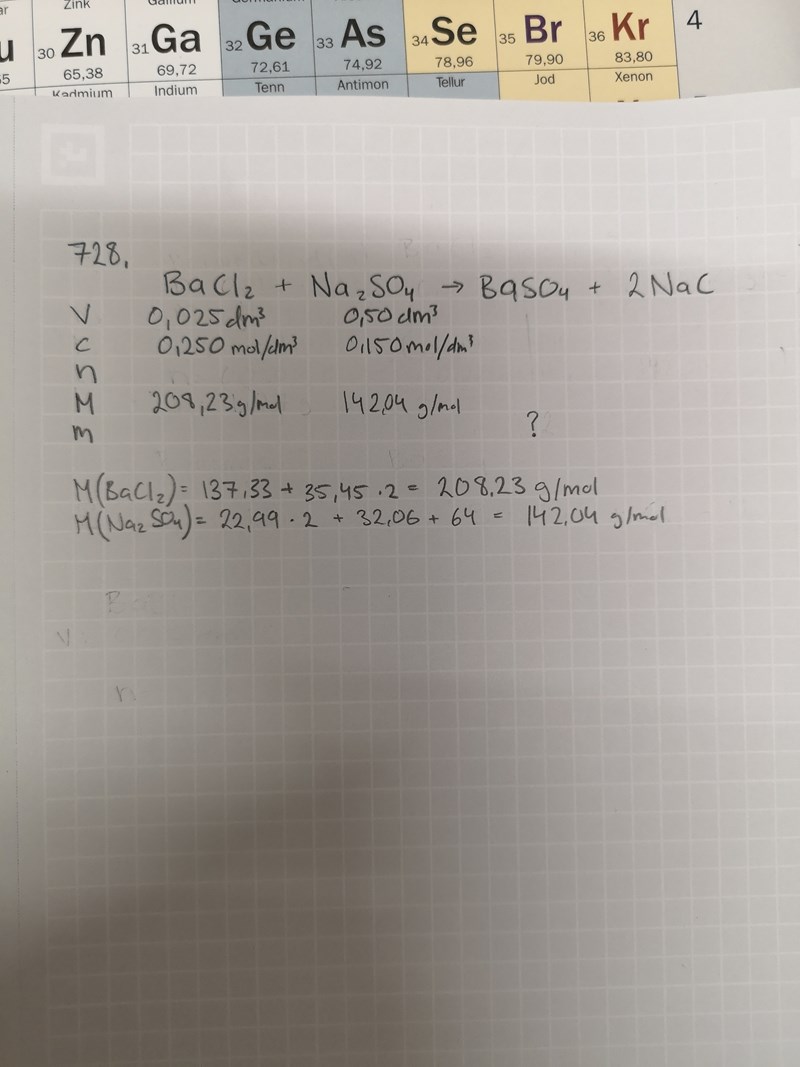 Zink
30 Zn 31 Ga 32 Ge 33 As 34 Se 35 Br 36 Kr 4
65,38 69,72 72,61 74,92 78,96 79,90 83,80
Kadmium Indium Tenn Antimon Tellur Jod Xenon
728.
BaCl₂ + Na₂SO₄ → BaSO₄ + 2 NaC
V 0,025 dm³ 0,50 dm³
c 0,250 mol/dm³ 0,150 mol/dm³
n
M 208,23 g/mol 142,04 g/mol
m ?
M(BaCl₂) = 137,33 + 35,45 · 2 = 208,23 g/mol
M(Na₂SO₄) = 22,99 · 2 + 32,06 + 64 = 142,04 g/mol